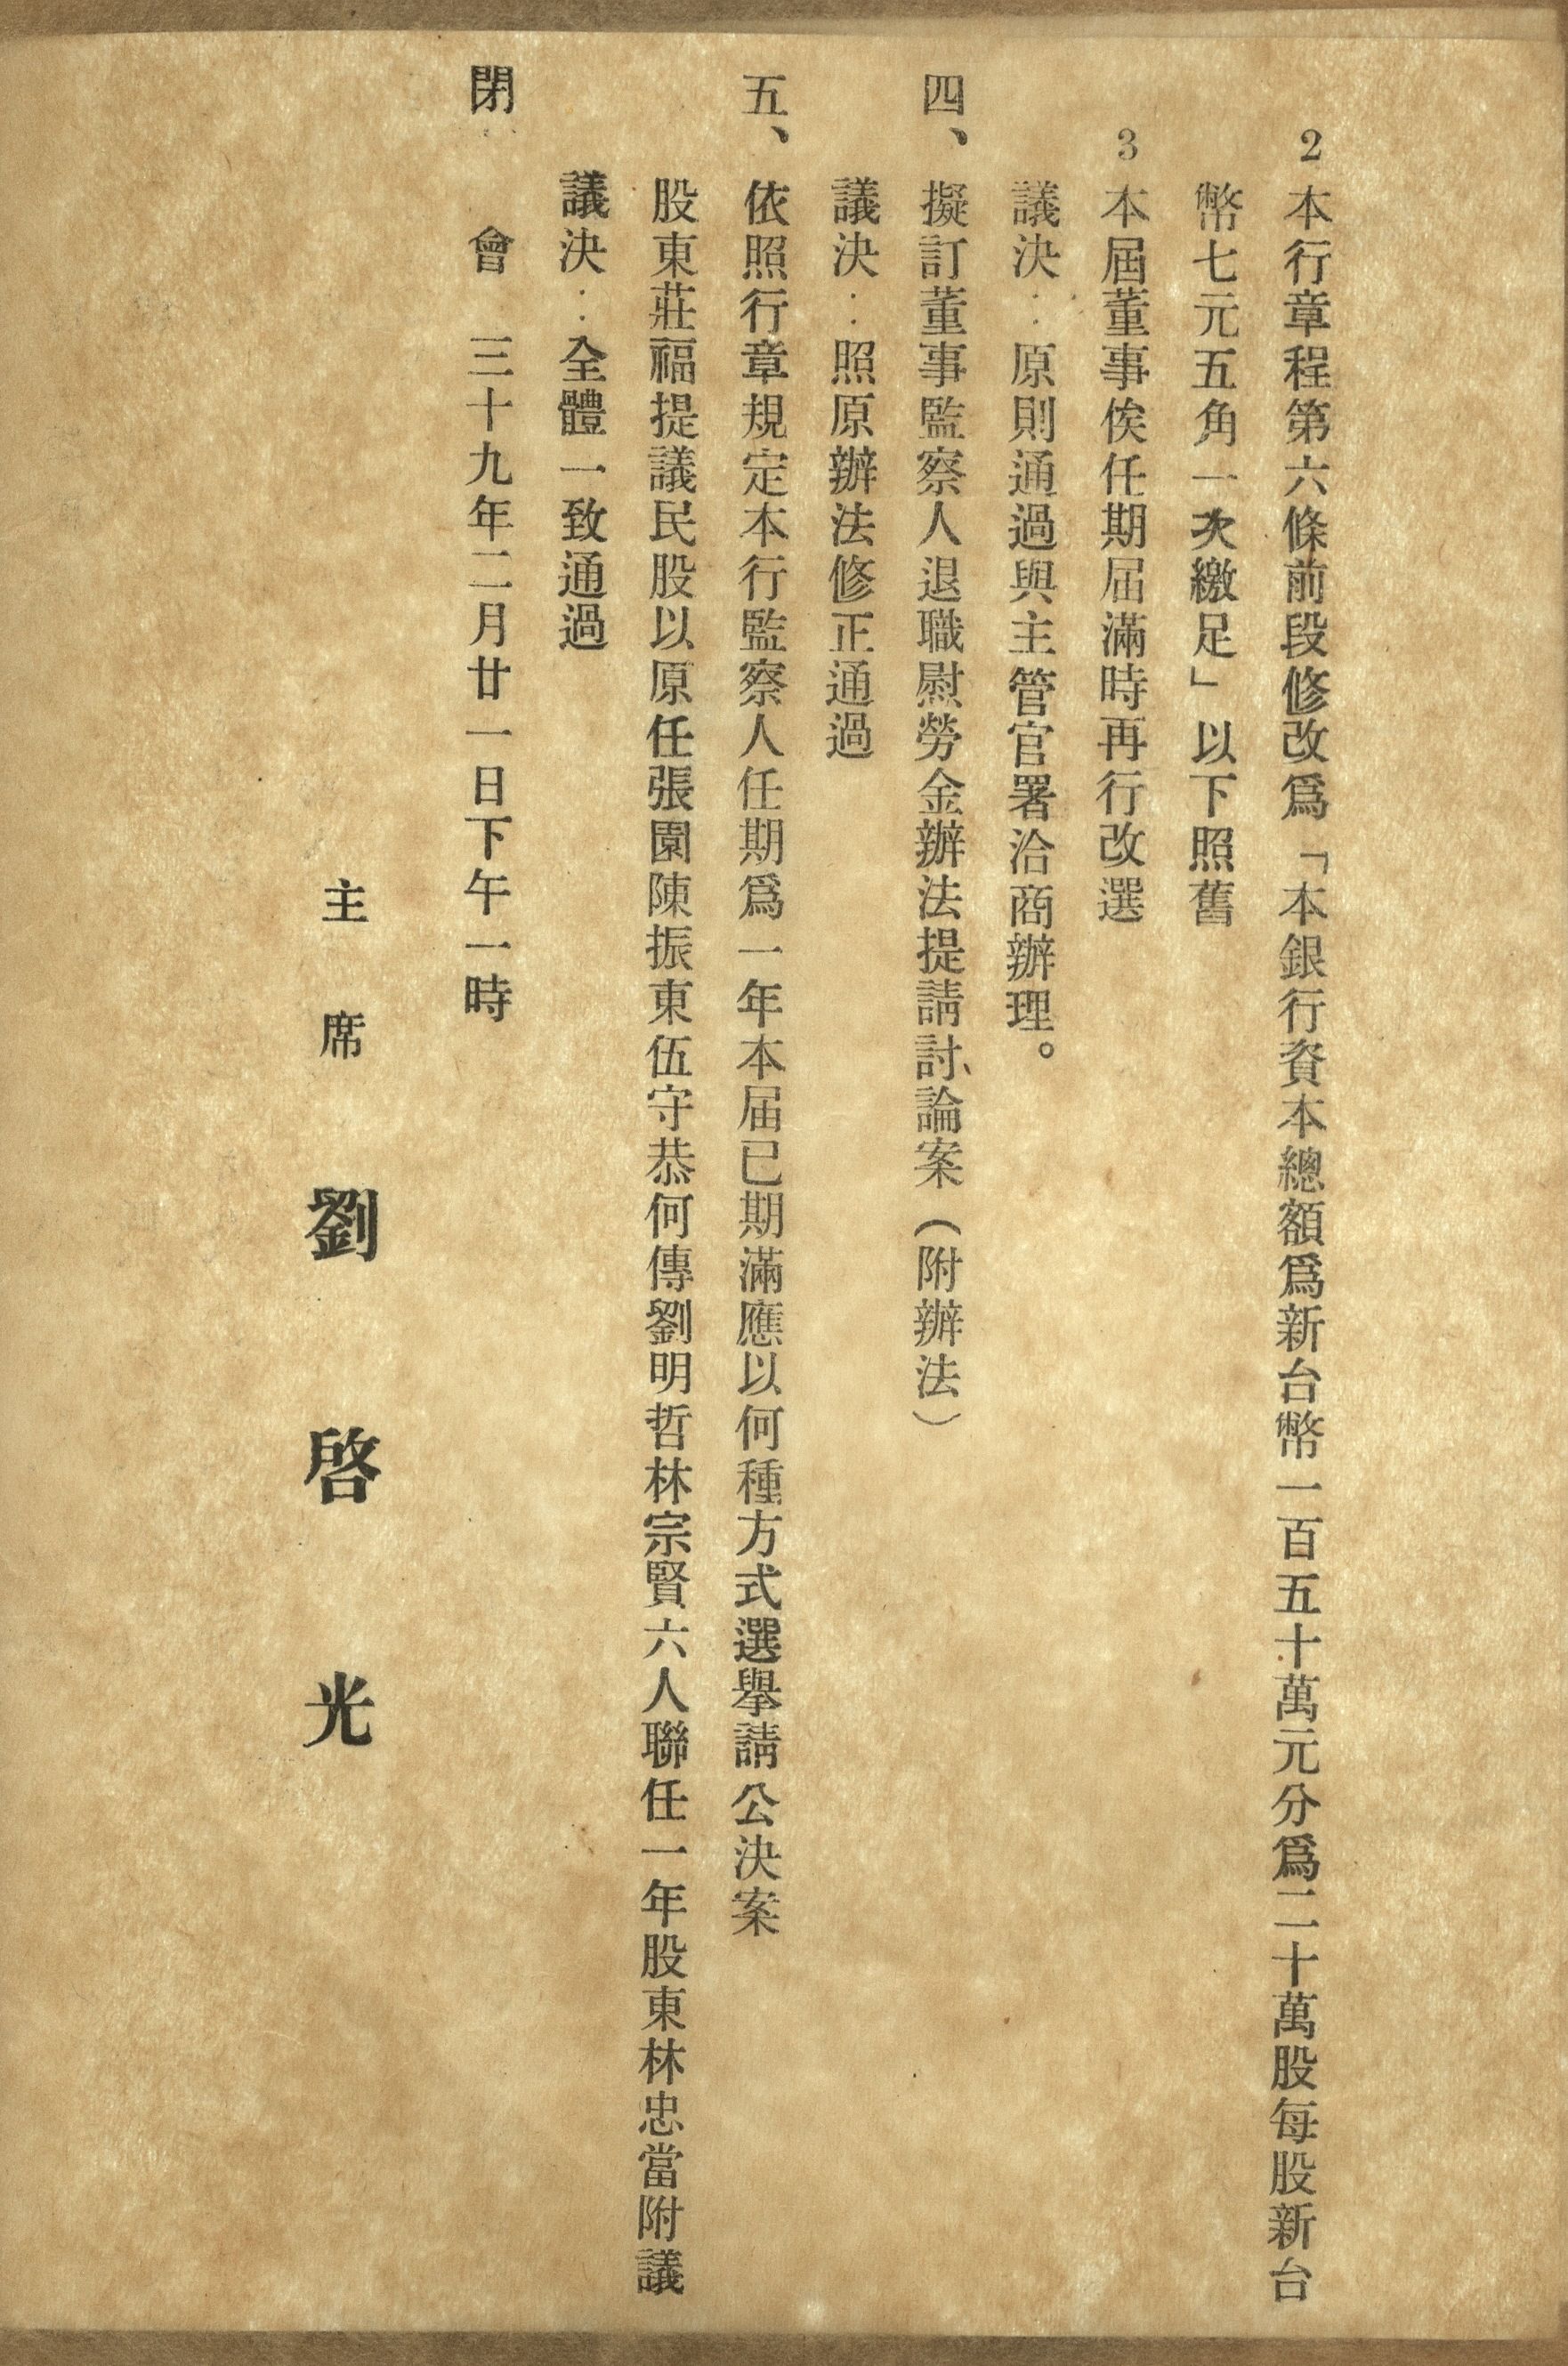 2 本行章程第六條前段修改爲「本銀行資本總額爲新台幣一百五十萬元分爲二十萬股每股新台
幣七元五角一次繳足」以下照舊
3 本屆董事俟任期届滿時再行改選
議決：原則通過與主管官署洽商辦理。
四、擬訂董事監察人退職慰勞金辦法提請討論案（附辦法）
議決：照原辦法修正通過
五、依照行章規定本行監察人任期爲一年本届已期滿應以何種方式選擧請公決案
股東莊福提議民股以原任張園陳振東伍守恭何傳劉明哲林宗賢六人聯任一年股東林忠當附議
議決：全體一致通過
閉會 三十九年二月廿一日下午一時
主席 劉啓光